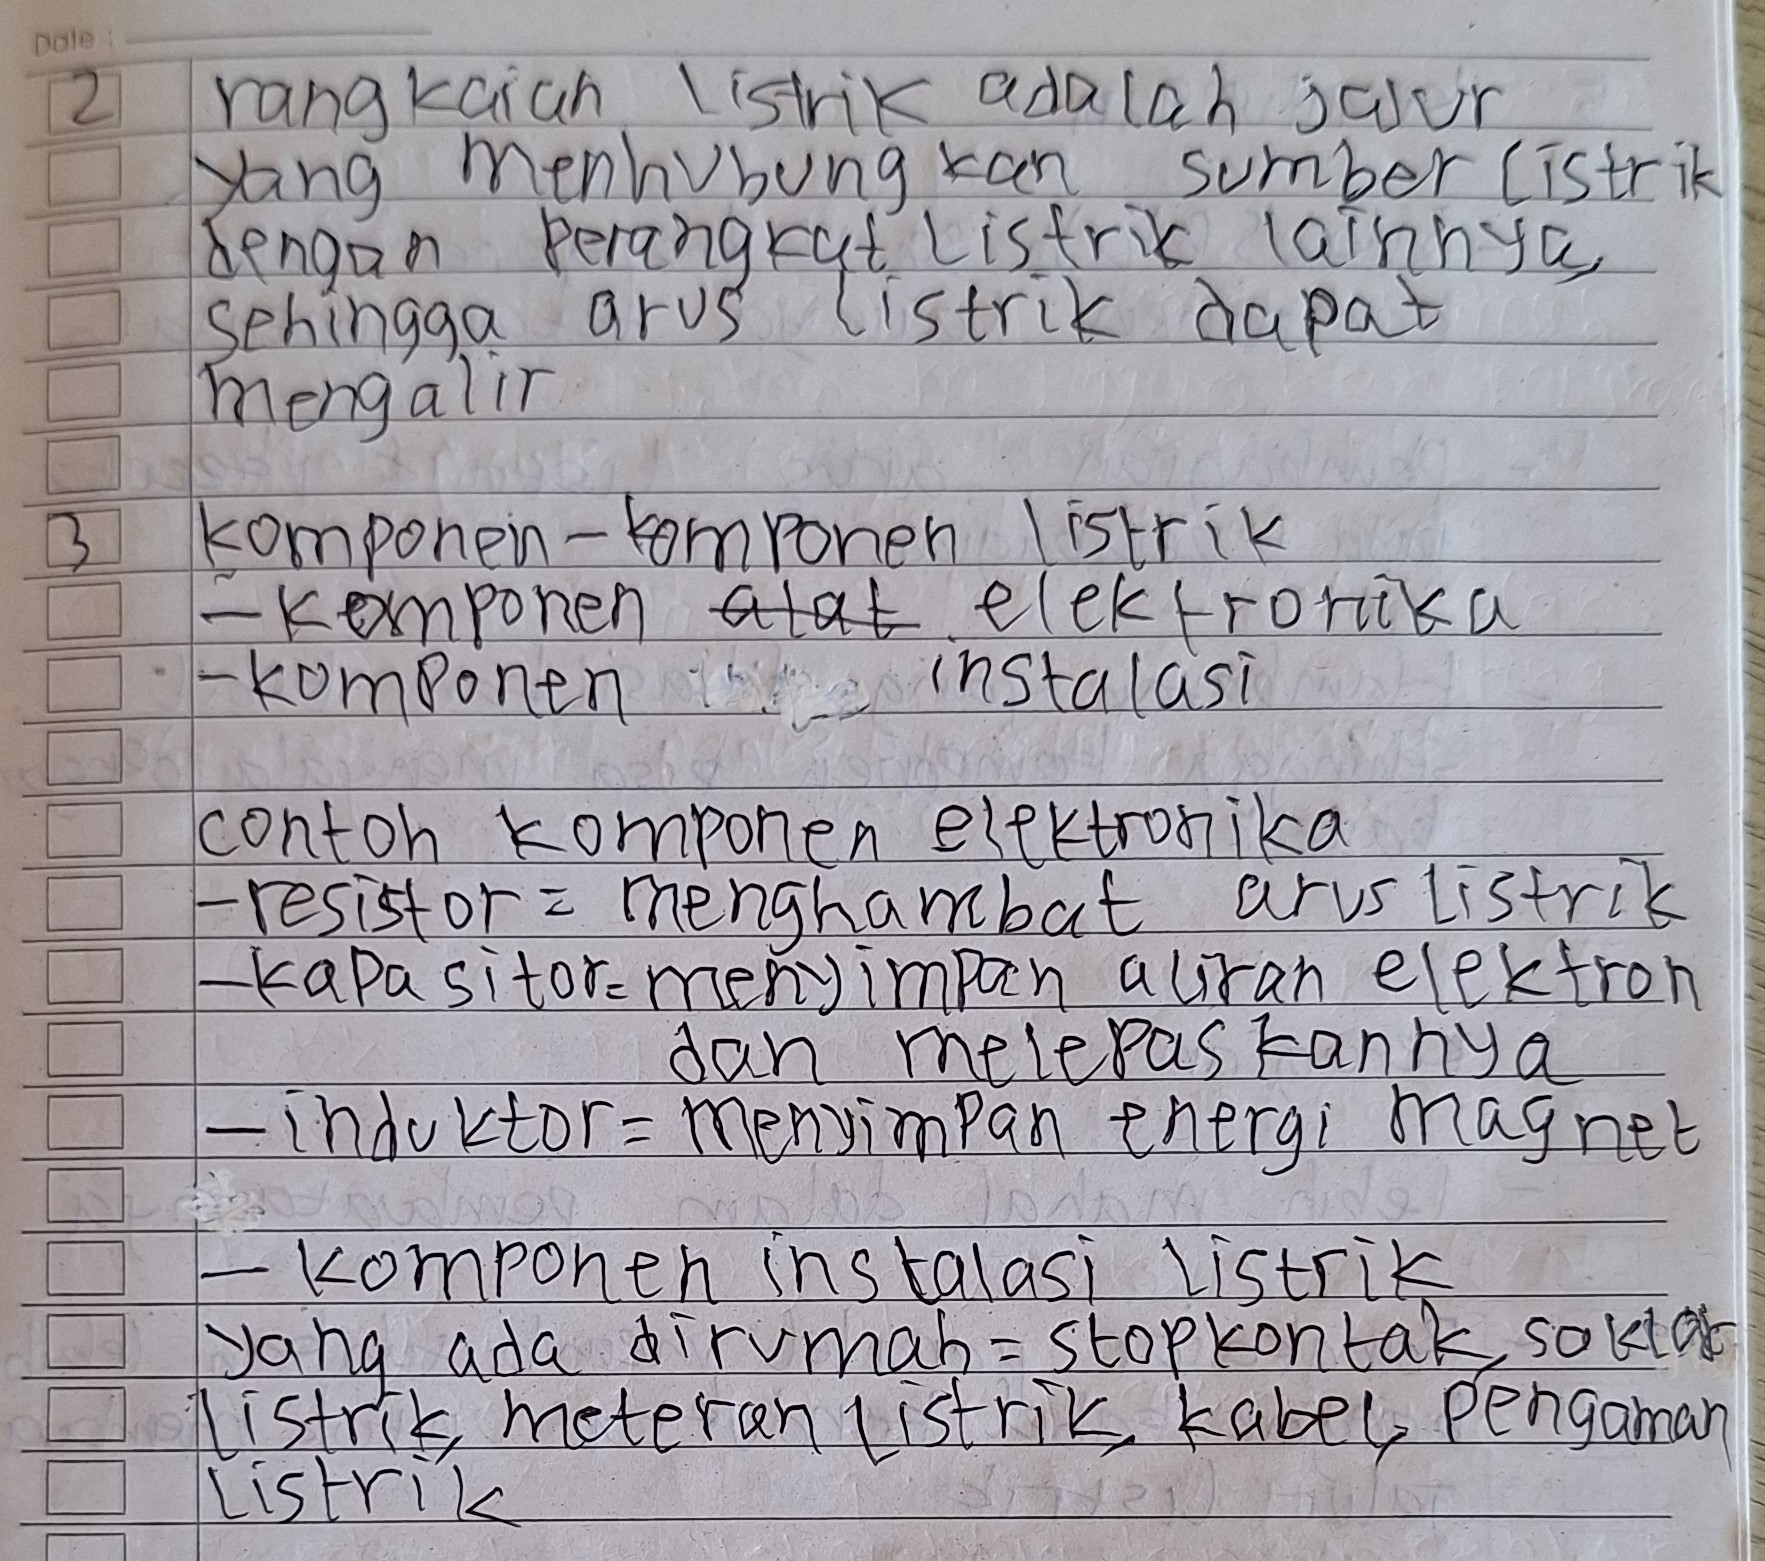 Date :
2 rangkaian listrik adalah jalur
yang menhubungkan sumber listrik
dengan perangkat listrik lainnya,
sehingga arus listrik dapat
mengalir
3 komponein - komponen listrik
- komponen elektronika
- komponen instalasi
contoh komponen elektronika
- resistor = menghambat arus listrik
- kapasitor = menyimpan aliran elektron
dan melepaskannya
- induktor = menyimpan energi magnet
- komponen instalasi listrik
yang ada dirumah = stopkontak,
listrik, meteran listrik, kabel, pengaman
listrik